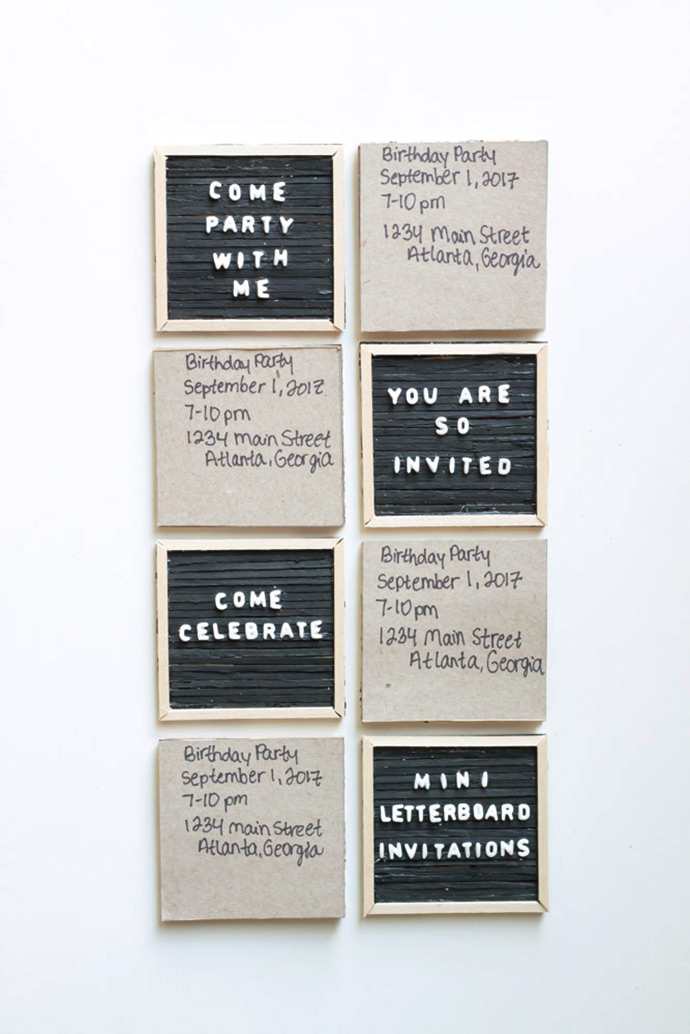 COME
PARTY
WITH
ME
Birthday Party
September 1, 2017
7-10 pm
1234 Main Street
Atlanta, Georgia
Birthday Party
September 1, 2017
7-10 pm
1234 Main Street
Atlanta, Georgia
YOU ARE
SO
INVITED
COME
CELEBRATE
Birthday Party
September 1, 2017
7-10 pm
1234 Main Street
Atlanta, Georgia
Birthday Party
September 1, 2017
7-10 pm
1234 Main Street
Atlanta, Georgia
MINI
LETTERBOARD
INVITATIONS